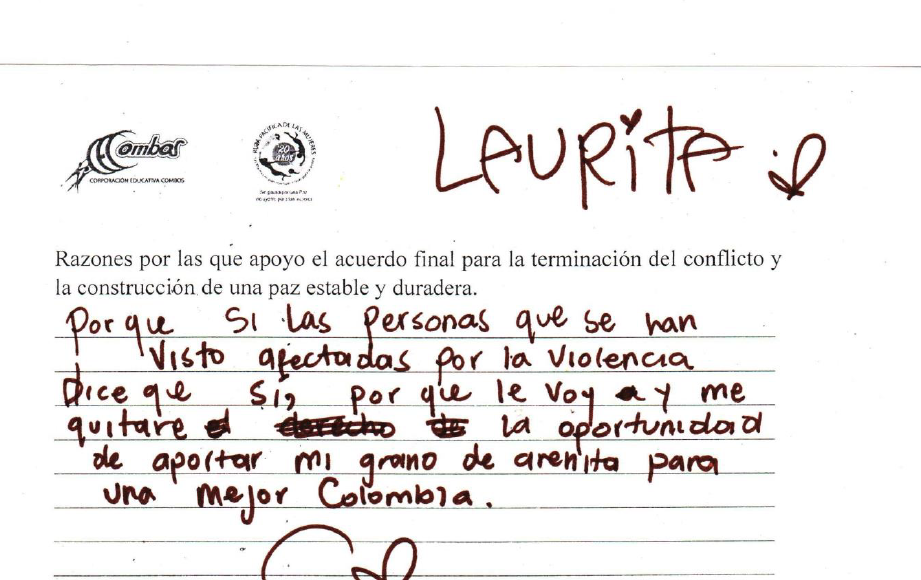 LAURITA
Combos
CORPORACIÓN EDUCATIVA COMBOS
RUTA PACÍFICA DE LAS MUJERES
20 años
Razones por las que apoyo el acuerdo final para la terminación del conflicto y
la construcción de una paz estable y duradera.
Por que Si las personas que se han
visto afectadas por la violencia
Dice que Sí, por que le voy a y me
quitare el derecho de la oportunidad
de aportar mi grano de arenita para
una mejor Colombia.